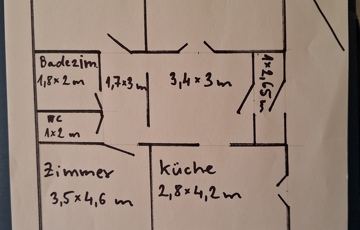 Badezim
1,8×2 m
1,7×3 m
3,4×3 m
1×2,65 m
WC
1×2 m
Zimmer
3,5×4,6 m
Küche
2,8×4,2 m